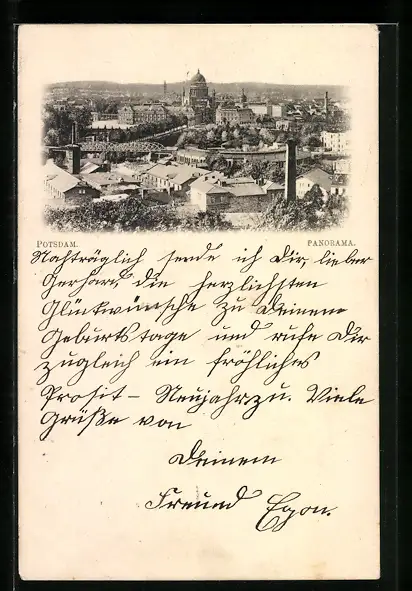 POTSDAM. PANORAMA.
Nachträglich sende ich Dir, lieber
Gerhard, die herzlichsten
Glückwünsche zu Deinem
Geburtstage und rufe Dir
zugleich ein fröhliches
Prosit – Neujahr zu. Viele
Grüße von
Deinem
Freund Egon.